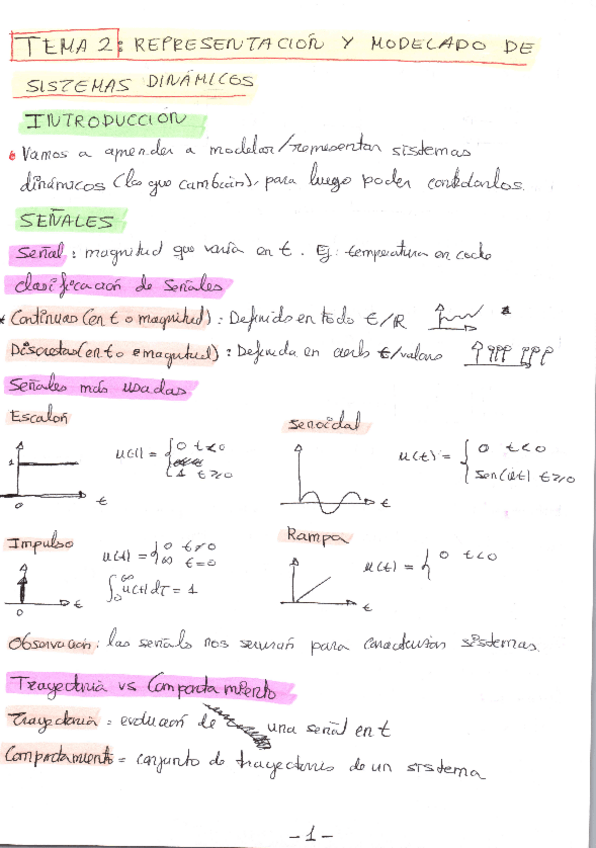 TEMA 2: REPRESENTACIÓN Y MODELADO DE
SISTEMAS DINÁMICOS
INTRODUCCIÓN
• Vamos a aprender a modelar/representar sistemas
dinámicos (los que cambian), para luego poder controlarlos.
SEÑALES
Señal: magnitud que varía en t. Ej: temperatura en coche
clasificación de señales
* Continuas (en t o magnitud): Definido en todo t/R
Discretas (en t o magnitud): Definida en cierto t/valores
Señales más usadas
Escalón
senoidal
1
u(t) = { 0 t<0
1 t≥0
0
t
u(t) = { 0 t<0
sen(ωt) t≥0
t
Impulso
Rampa
u(t) = { 0 t≠0
∞ t=0
∫₀^∞ u(t)dτ = 1
0
t
u(t) = { 0 t<0
t
Observación: las señales nos servirán para caracterizar sistemas.
Trayectoria vs Comportamiento
Trayectoria: evolución de una señal en t
Comportamiento = conjunto de trayectorias de un sistema
-1-